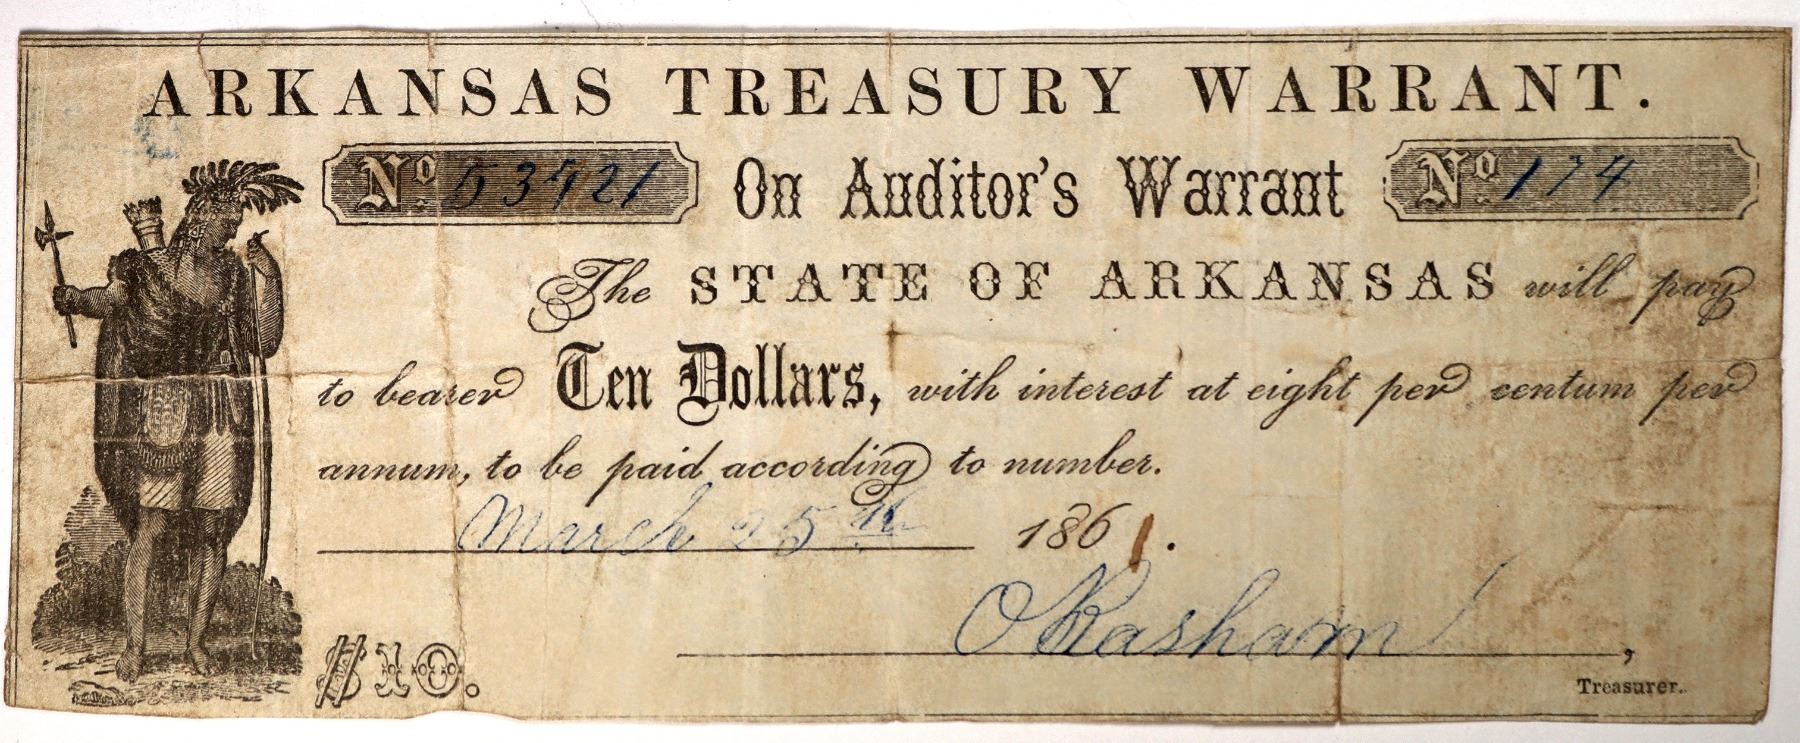 ARKANSAS TREASURY WARRANT.
No. 53721 On Auditor's Warrant No. 174
The STATE OF ARKANSAS will pay
to bearer Ten Dollars, with interest at eight per centum per
annum, to be paid according to number.
March 25th 1861.
$10.
Treasurer.